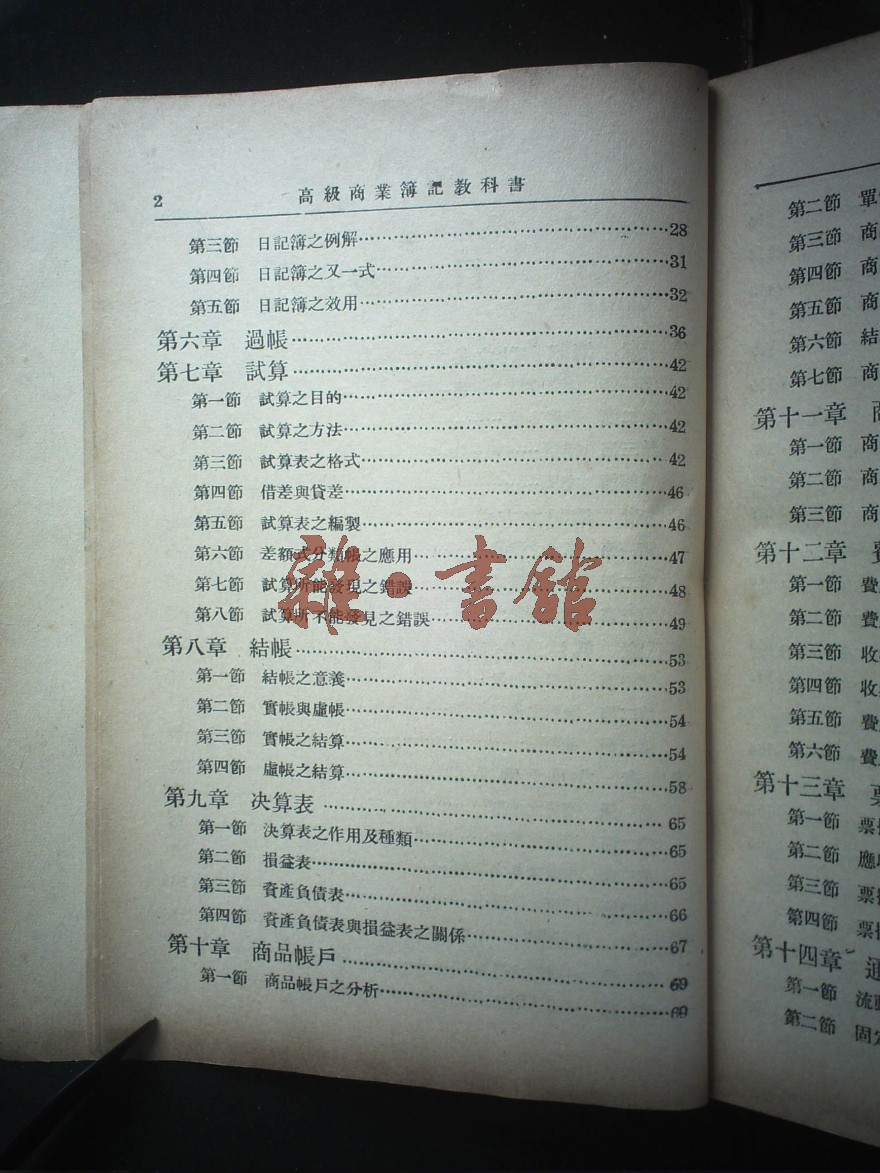 2 高級商業簿記教科書
第三節 日記簿之例解……28
第四節 日記簿之又一式……31
第五節 日記簿之效用……32
第六章 過帳……36
第七章 試算……42
第一節 試算之目的……42
第二節 試算之方法……42
第三節 試算表之格式……42
第四節 借差與貸差……46
第五節 試算表之編製……46
第六節 差額式分類帳之應用……47
第七節 試算所能發現之錯誤……48
第八節 試算所不能發見之錯誤……49
第八章 結帳……53
第一節 結帳之意義……53
第二節 實帳與虛帳……54
第三節 實帳之結算……54
第四節 虛帳之結算……58
第九章 決算表……65
第一節 決算表之作用及種類……65
第二節 損益表……65
第三節 資產負債表……66
第四節 資產負債表與損益表之關係……67
第十章 商品帳戶……69
第一節 商品帳戶之分析……69
雜·書館
第二節 單
第三節 商
第四節 商
第五節 商
第六節 結
第七節 商
第十一章 商
第一節 商
第二節 商
第三節 商
第十二章 費
第一節 費
第二節 費
第三節 收
第四節 收
第五節 費
第六節 費
第十三章 票
第一節 票
第二節 應
第三節 票
第四節 票
第十四章
第一節 流動
第二節 固定